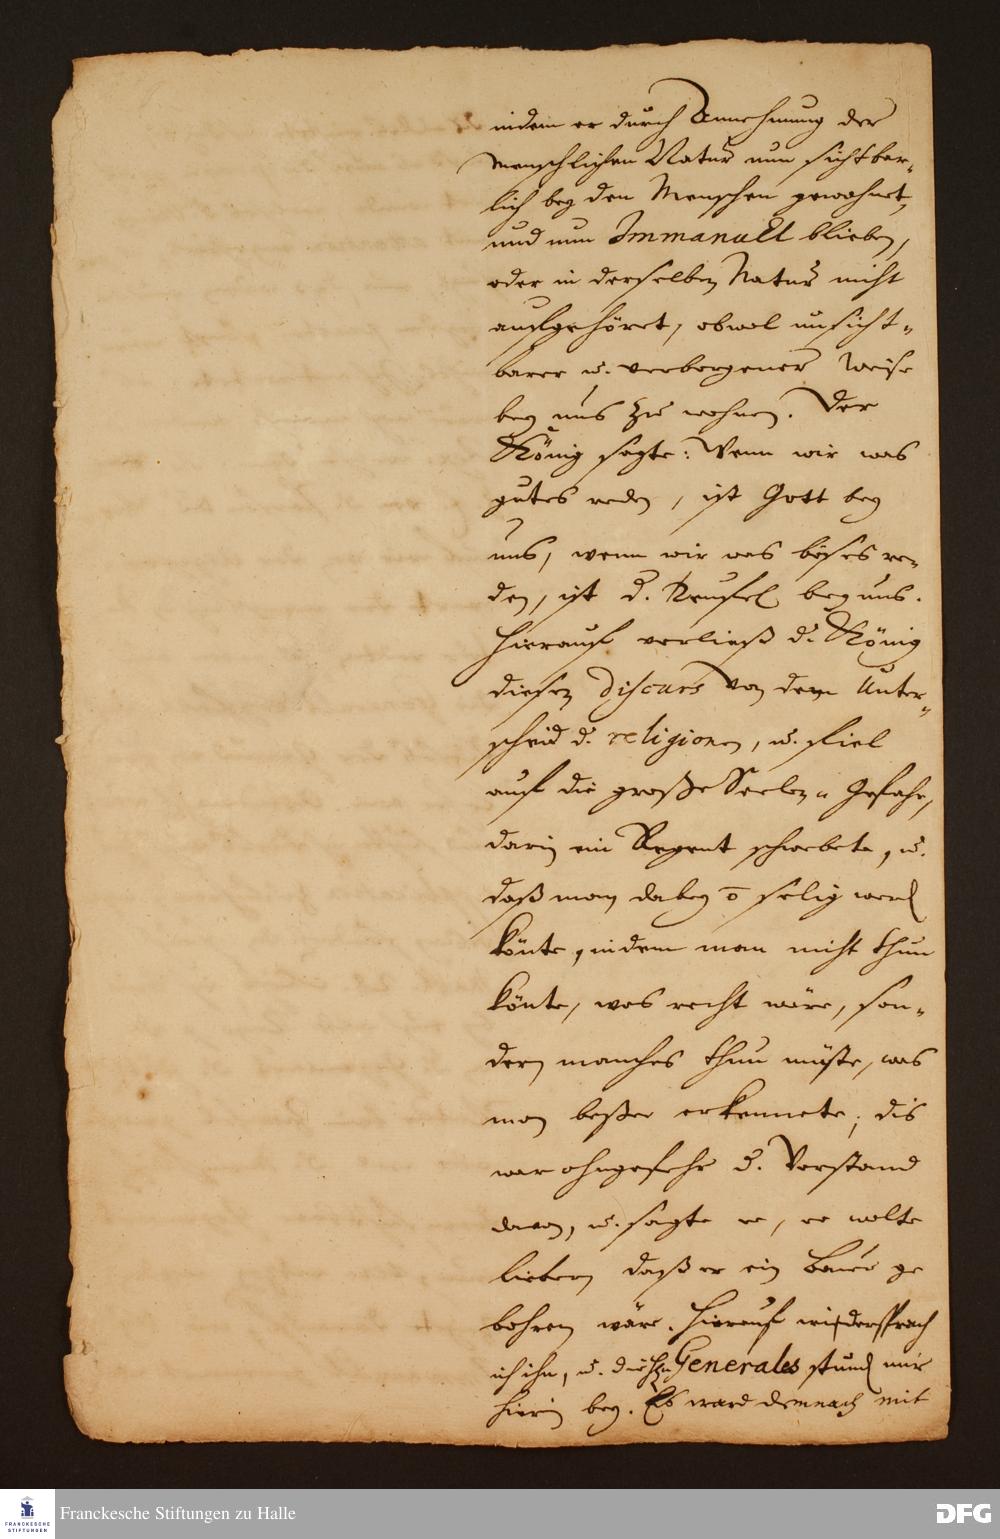 indem er durch Annehmung der
Menschlichen Natur nun sichtbar-
lich bey den Menschen gewohnet,
und nun ImmanuEl blieben,
oder in derselben Natur nicht
aufgehöret, obwol unsicht-
barer u. verborgener Weise
bey uns zu wohnen. Der
König sagte: Wenn wir was
gutes reden, ist Gott bey
uns, wenn wir was böses re-
den, ist d. Teufel bey uns.
Hierauf verließ d. König
diesen Discurs von dem Unter-
scheid d. religionen, u. fiel
auf die große Seelen-Gefahr,
darin ein Regent schwebete, u.
daß man dabey selig werd
könte, indem man nicht thun
könte, was recht wäre, son-
dern manches thun müste, was
man beßer erkennete; dis
war ohngefehr d. Verstand
davon, u. sagte er, er wolte
liebern daß er ein Bauer ge
bohren wäre. Hierauf wiedersprach
ich ihn, u. die Hn Generales stund mir
hierin bey. Es ward demnach mit
Franckesche Stiftungen zu Halle
FRANCKESCHE
STIFTUNGEN
DFG